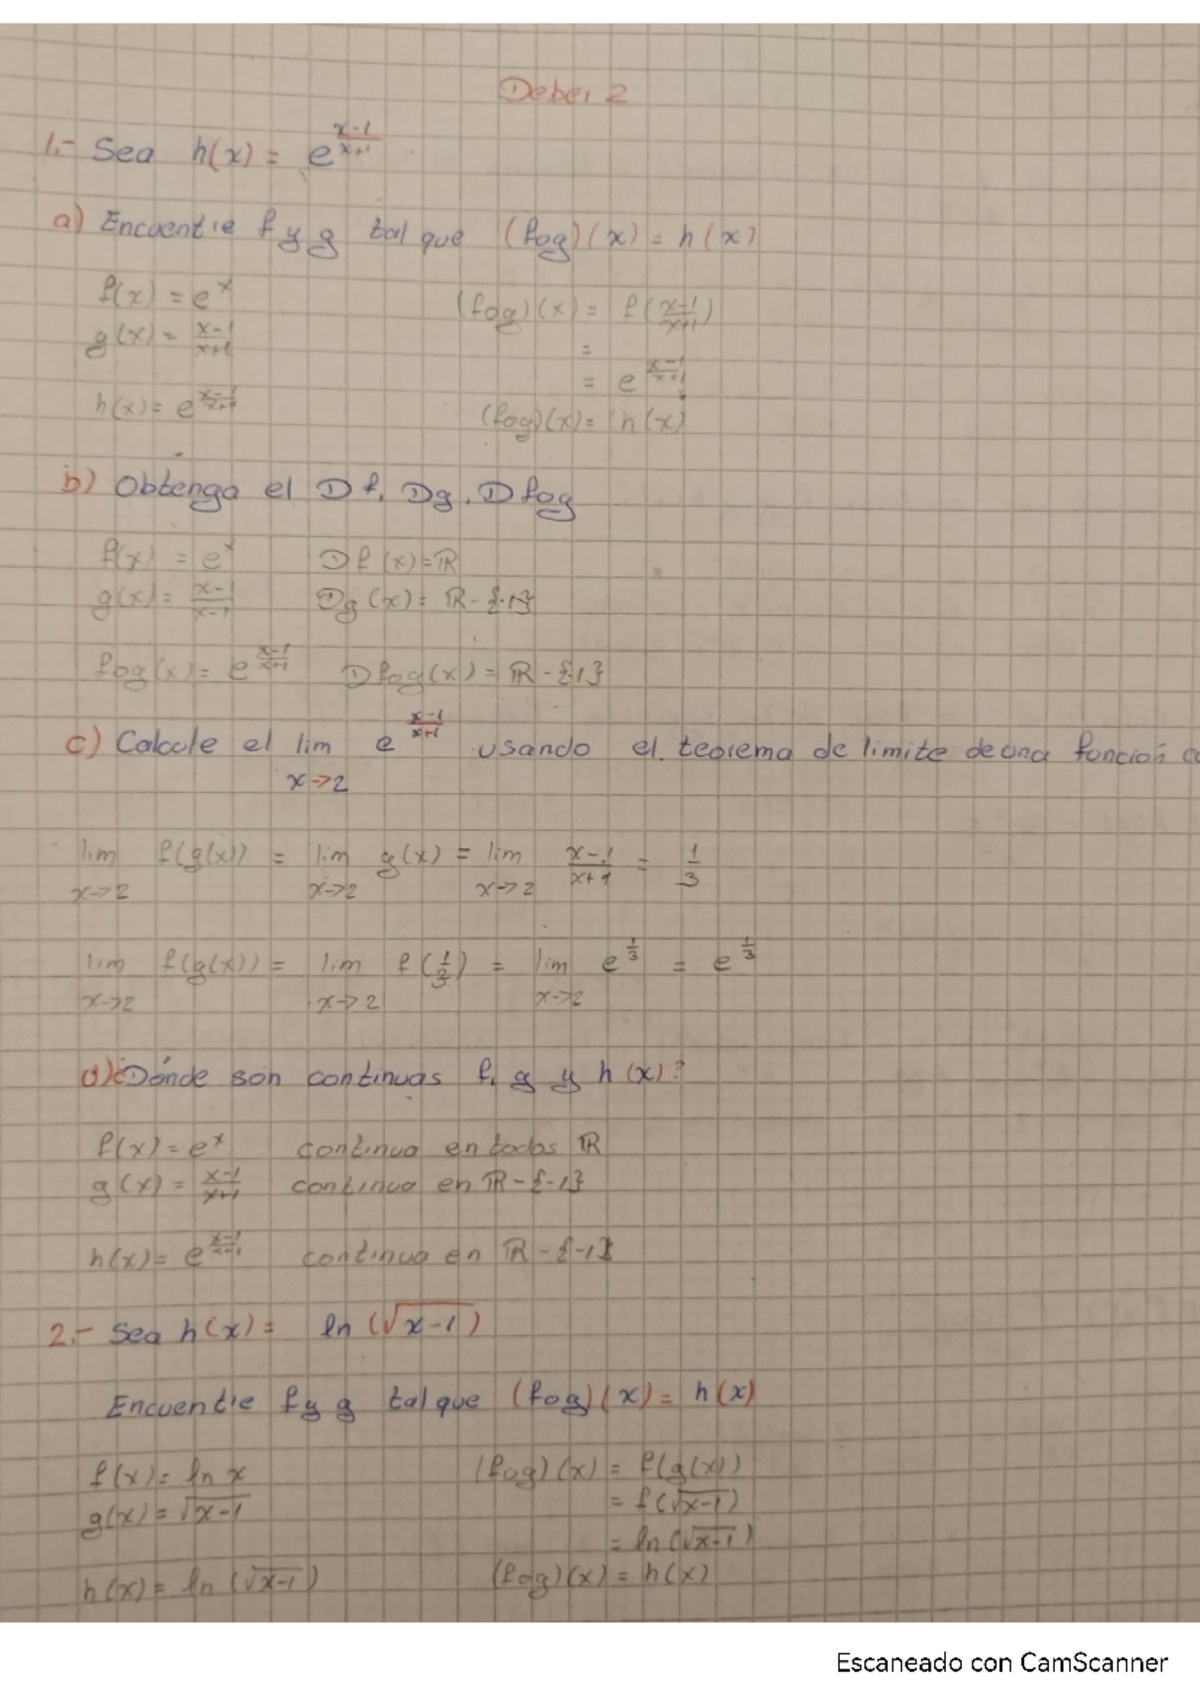 Deber 2
1.- Sea h(x) = e^((x-1)/(x+1))
a) Encuentre f y g tal que (fog)(x) = h(x)
f(x) = e^x (fog)(x) = f((x-1)/(x+1))
g(x) = (x-1)/(x+1) =
= e^((x-1)/(x+1))
h(x) = e^((x-1)/(x+1)) (fog)(x) = h(x)
b) Obtenga el Df, Dg, Dfog
f(x) = e^x Df(x) = ℝ
g(x) = (x-1)/(x-1) Dg(x) = ℝ - {-1}
fog(x) = e^((x-1)/(x+1)) Dfog(x) = ℝ - {-1}
c) Calcule el lim e^((x-1)/(x+1)) usando el teorema de limite de una función
x→2
lim f(g(x)) = lim g(x) = lim (x-1)/(x+1) = 1/3
x→2 x→2 x→2
lim f(g(x)) = lim f(1/3) = lim e^(1/3) = e^(1/3)
x→2 x→2 x→2
d) ¿Dónde son continuas f, g y h(x)?
f(x) = e^x continua en todos ℝ
g(x) = (x-1)/(x+1) continua en ℝ - {-1}
h(x) = e^((x-1)/(x+1)) continua en ℝ - {-1}
2.- Sea h(x) = ln(√(x-1))
Encuentre f y g tal que (fog)(x) = h(x)
f(x) = ln x (fog)(x) = f(g(x))
g(x) = √(x-1) = f(√(x-1))
= ln(√(x-1))
h(x) = ln(√(x-1)) (fog)(x) = h(x)
Escaneado con CamScanner